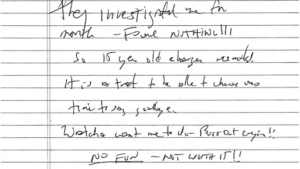 They investigated me for
month - Found NOTHING!!!
So 15 year old charges resulted.
It is a treat to be able to choose
time to say goodbye.
want me to do - Burst out crying!!
NO FUN - NOT WORTH IT!!